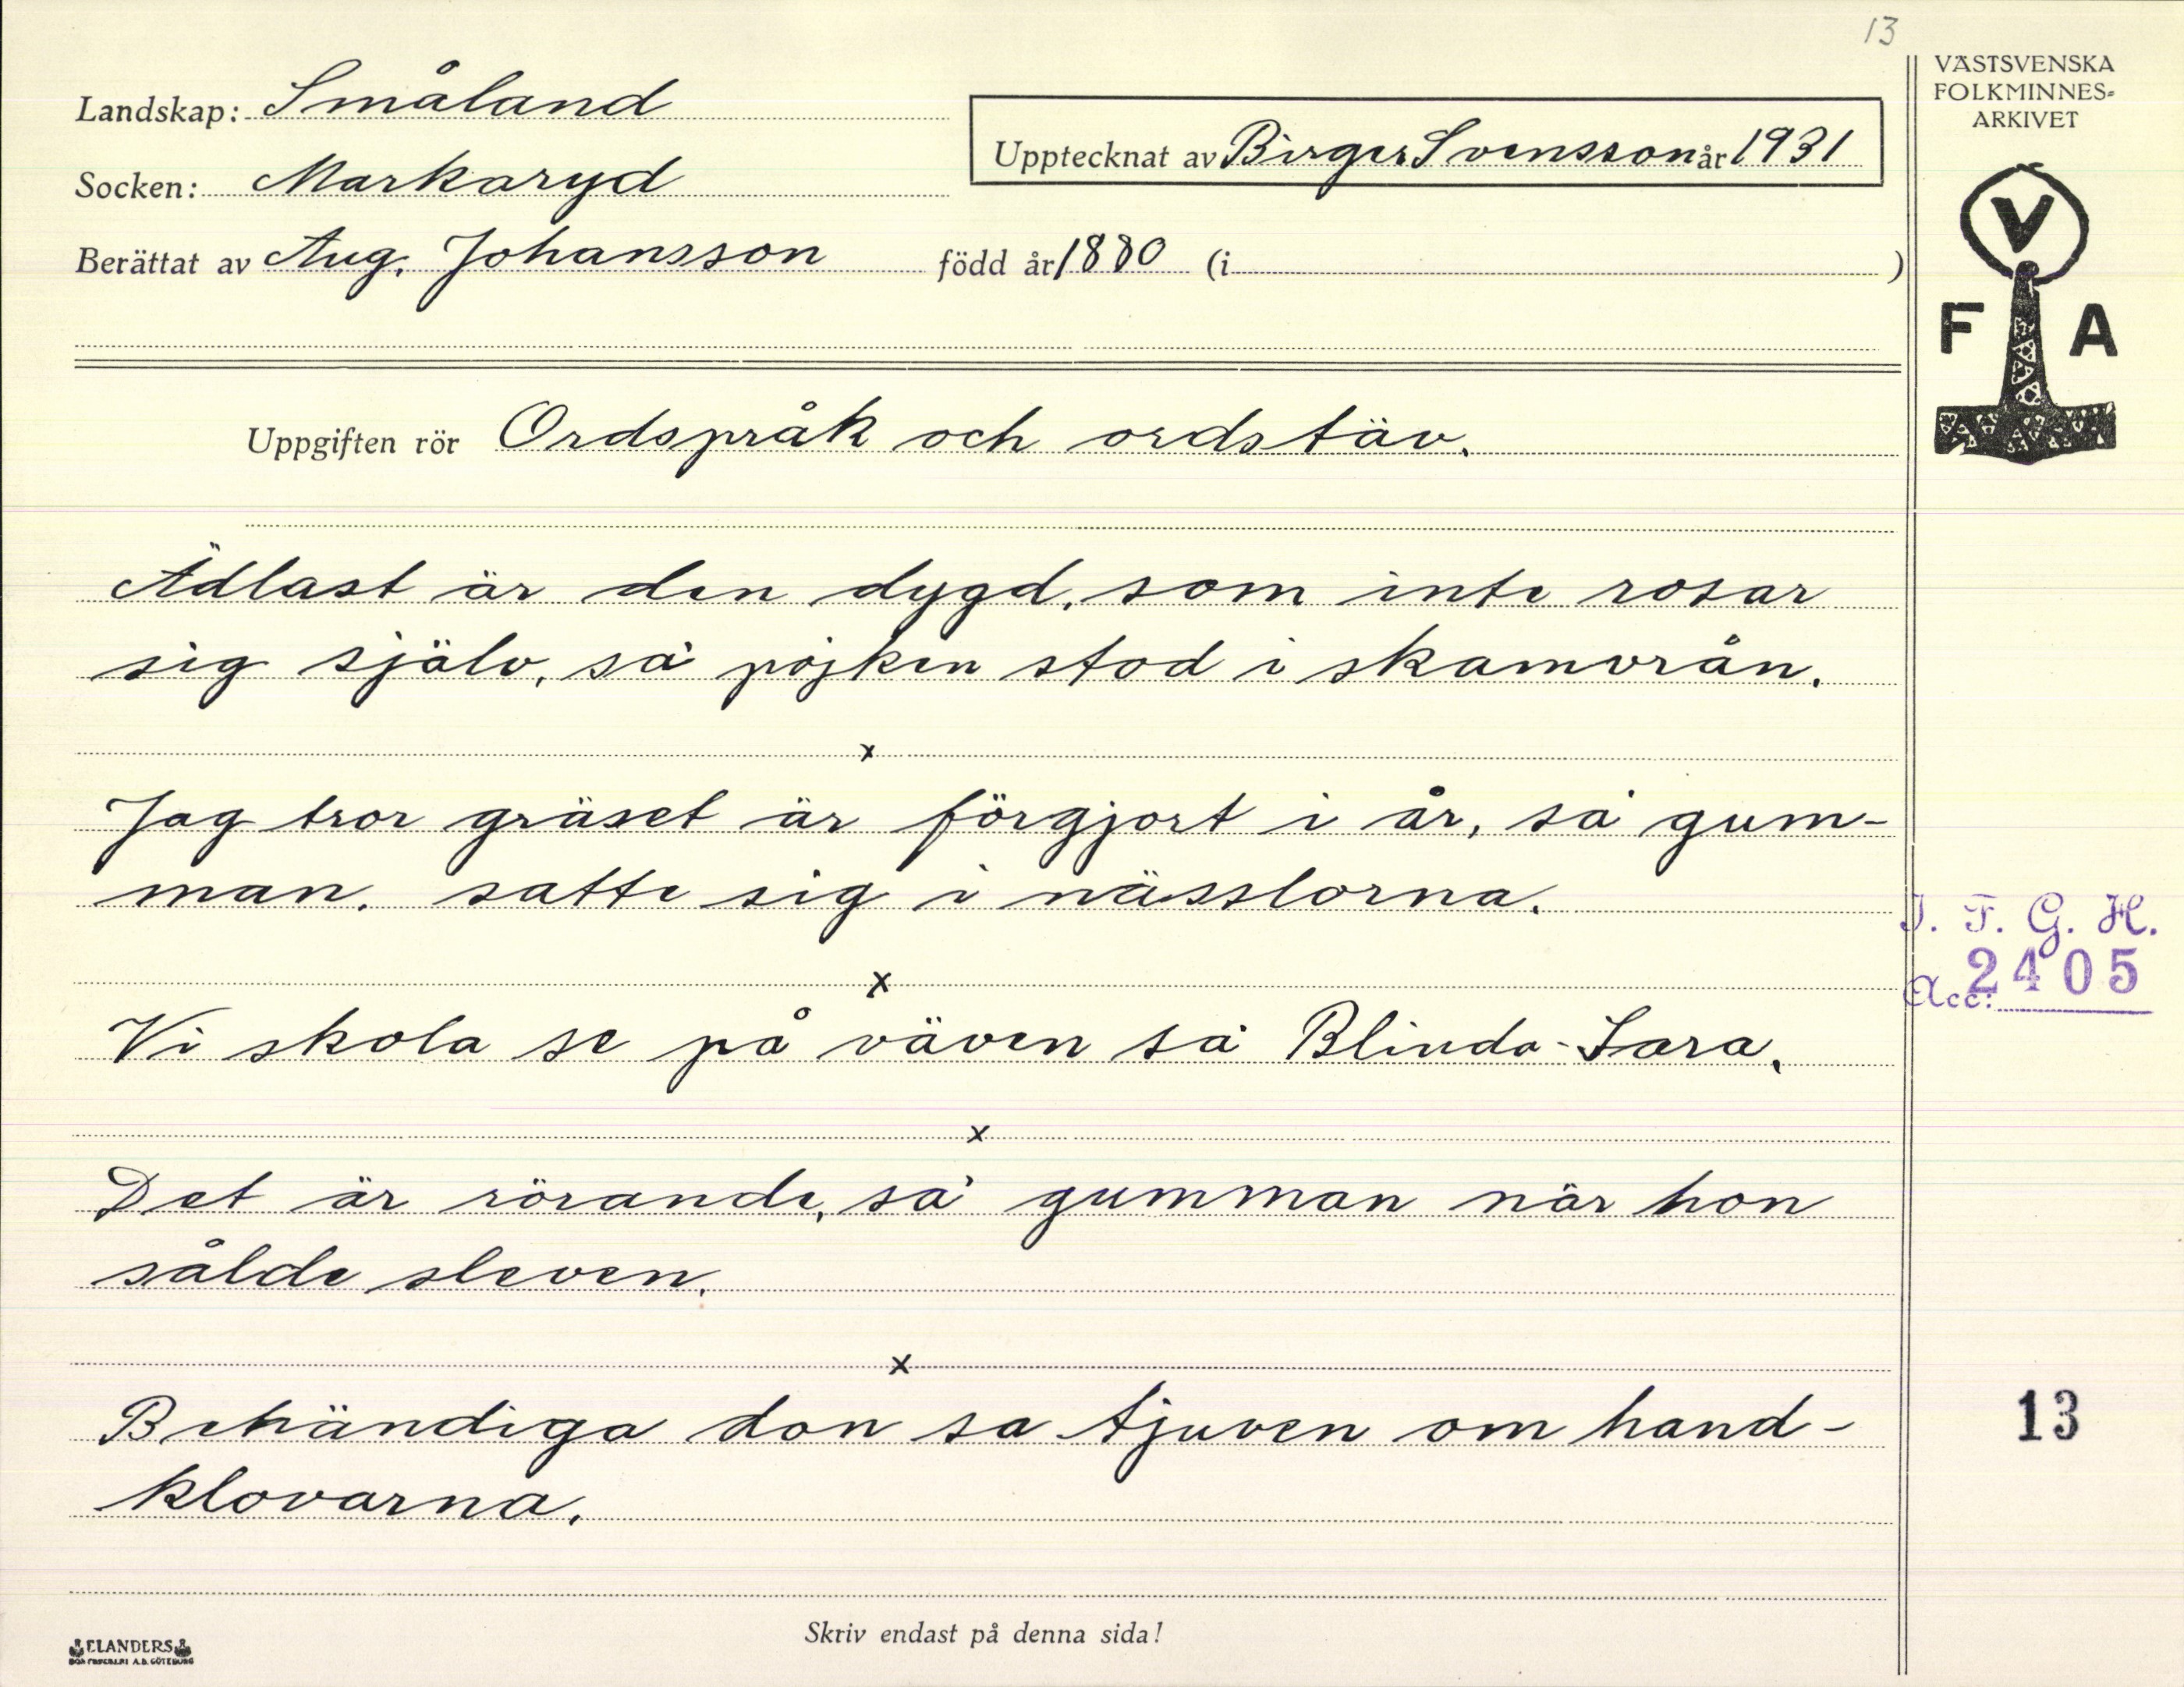 13
Landskap: Småland
Socken: Markaryd
Upptecknat av Birger Svensson år 1931
Berättat av Aug. Johansson född år 1880 (i )
VÄSTSVENSKA
FOLKMINNES-
ARKIVET
V
F A
Uppgiften rör Ordspråk och ordstäv.
Ädlast är den dygd, som inte rosar
sig själv, sa' pojken stod i skamvrån.
x
Jag tror gräset är förgjort i år, sa' gum-
man. satte sig i nässlorna.
x
Vi skola se på väven sa' Blinda-Sara.
x
Det är rörande, sa' gumman när hon
sålde sleven.
x
Behändiga don sa tjuven om hand-
klovarna.
I. F. G. H.
Acc: 2405
13
Skriv endast på denna sida!
ELANDERS
BOKTRYCKERI A.B. GÖTEBORG